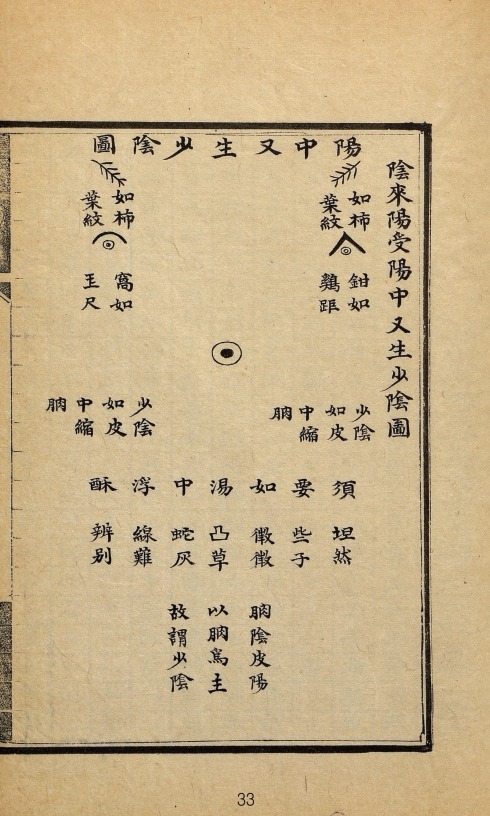 陰來陽受陽中又生少陰圖
陽中又生少陰圖
如柿
葉紋
鉗如
鷄距
如柿
葉紋
窩如
玉尺
少陰
如皮
中縮
朒
少陰
如皮
中縮
朒
須坦然
要些子
如微微朒陰皮陽
湯凸草以朒爲主
中蛇灰故謂少陰
浮線難
酥辨别
33